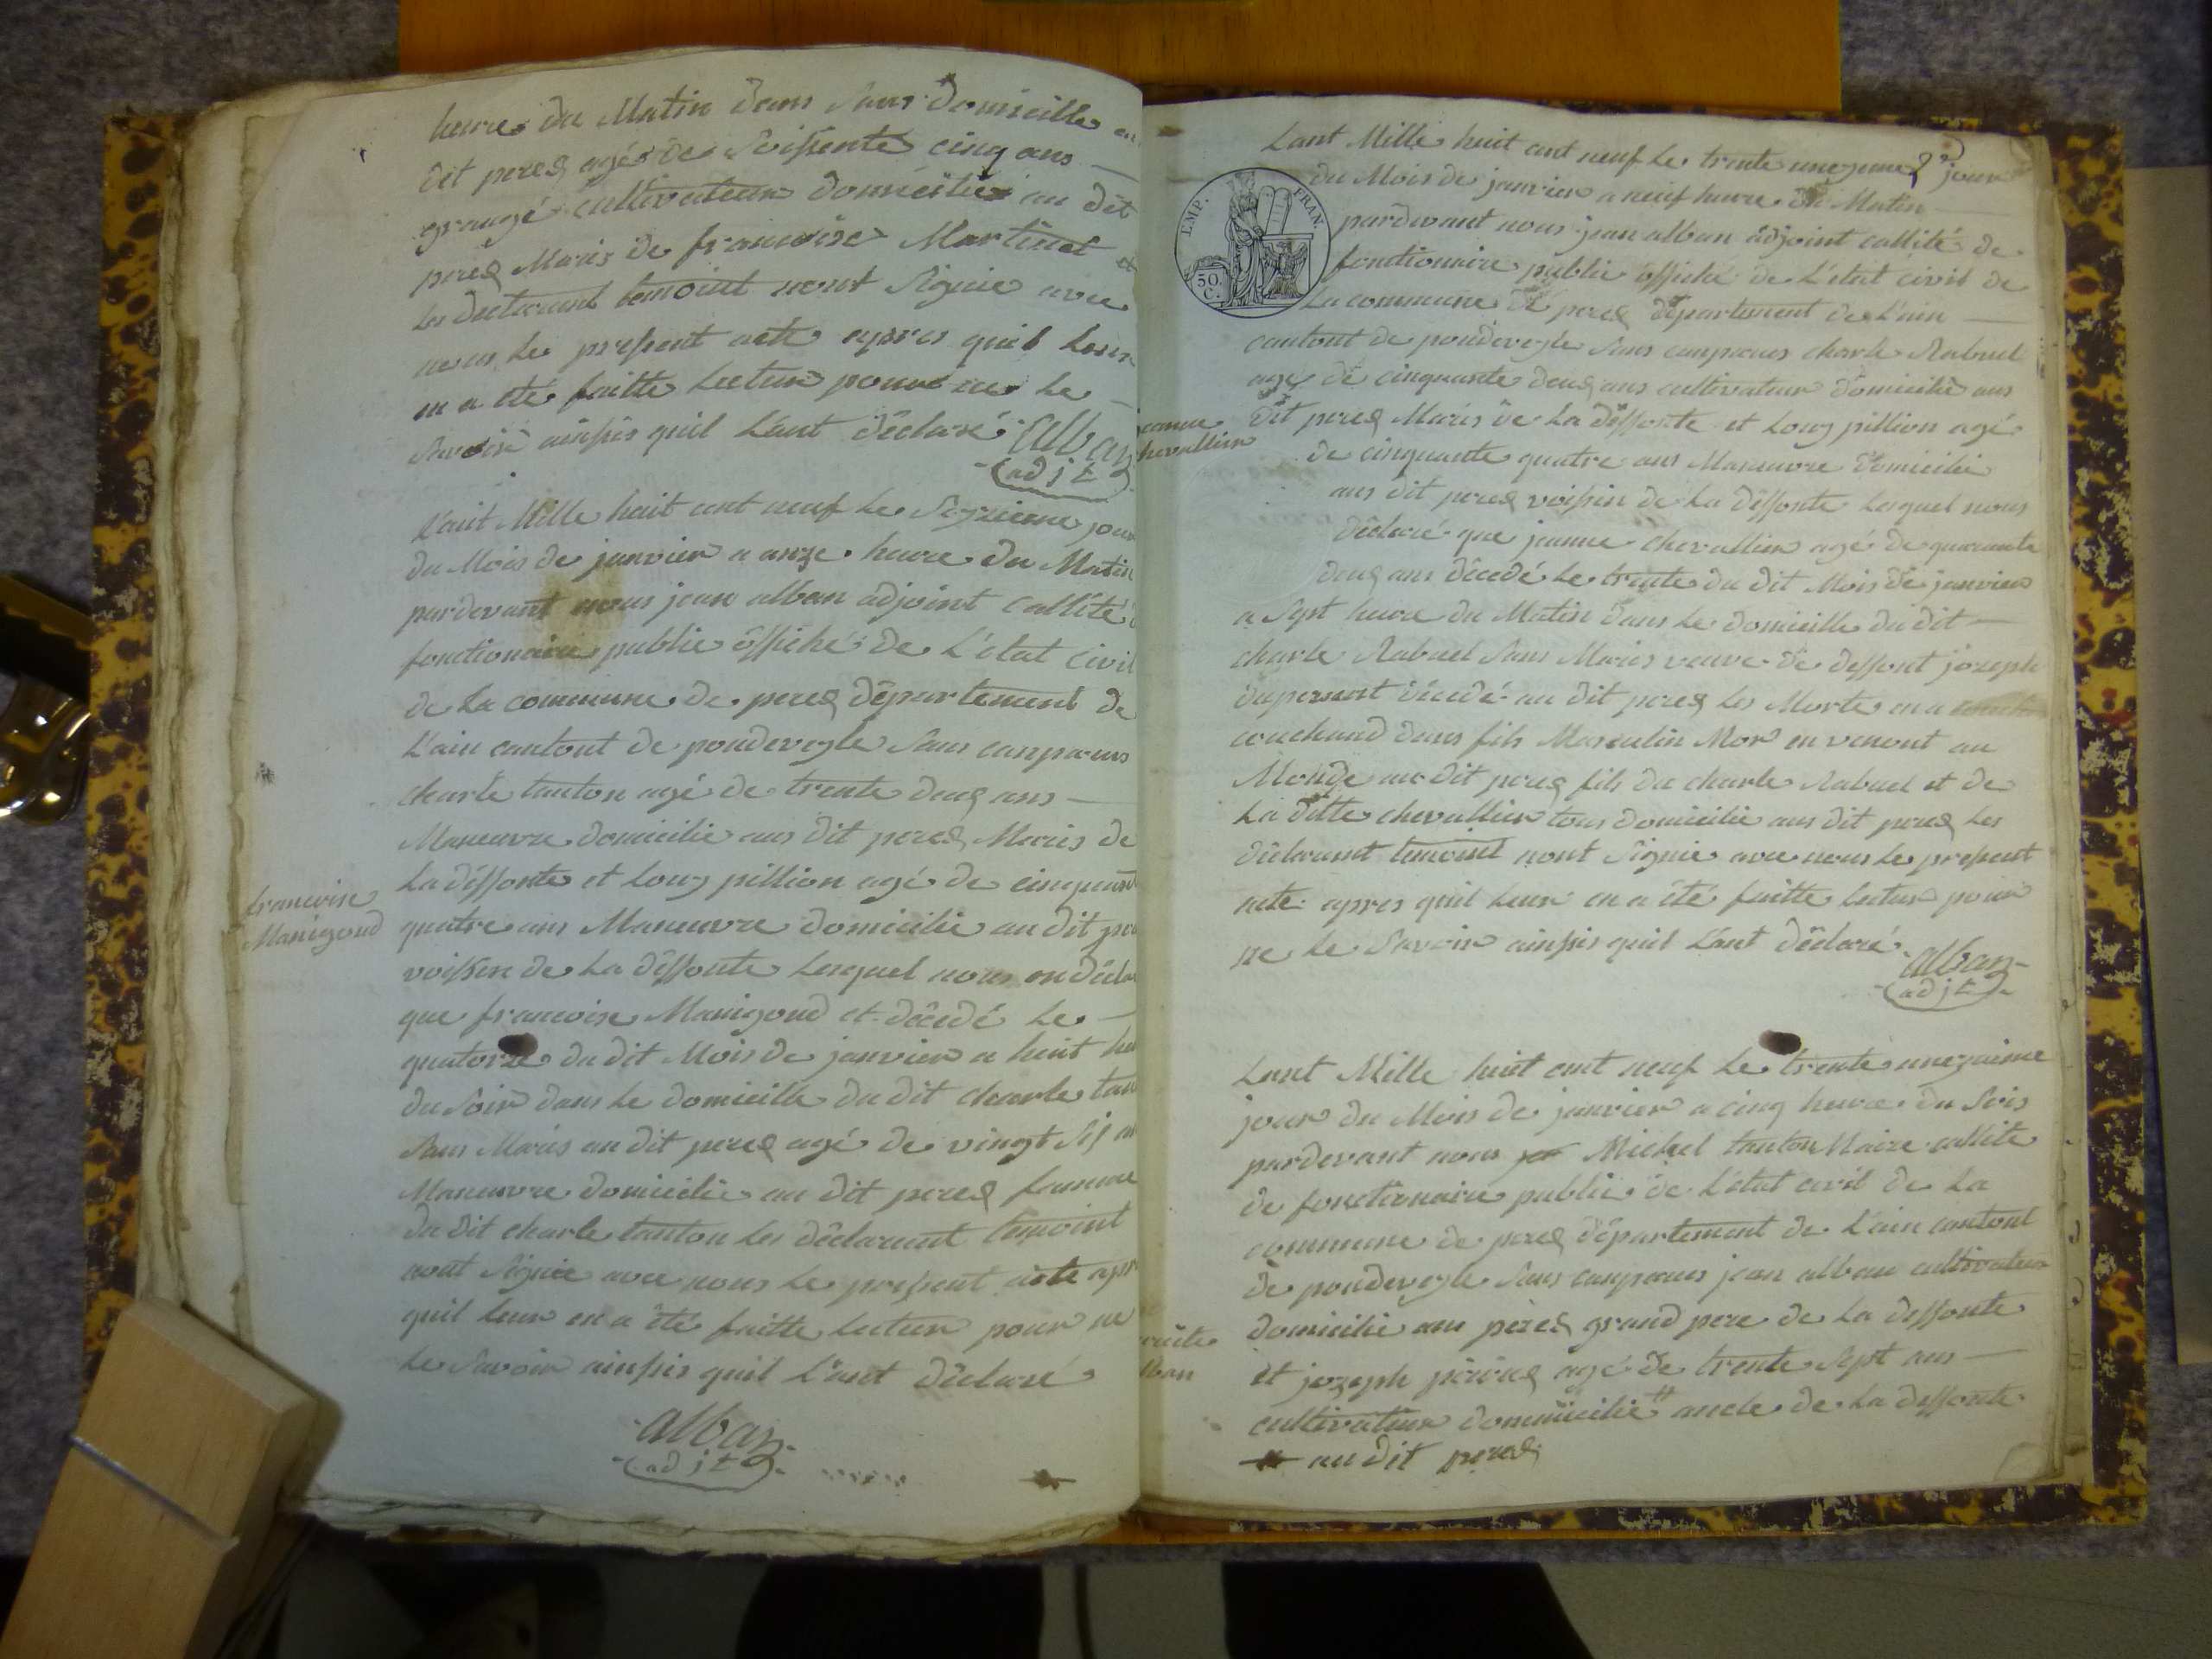 heure du Matin dans Sans domicille au
dit perex agé de Soissente cinq ans
grangé cultivateur domicilié au dit
perex Maris de francoise Martinet et
les declarant temoint nont Signie avec
nous le pressent acte apres quil leur
en a été faitte lecteur pour ne le
Savoir ainssis quil L'ant déclaré
alban
adjt
L'ant Mille huit cent neuf le Sezzieme jour
du Mois de janvier a onze heure du Matin
pardevant nous jean alban adjoint callité
fonctionaire public offiché de L'état Civil
de la commune de perex département de
L'ain cantont de pondevegle Sans comparus
charle tanton agé de trente deux ans
Maneuvre domicilie aus dit perex Maris de
la déffonte et Louy pillion agé de cinquant
francoise
Manigoud
quatre ans Maneuvre domicilie au dit per
voissin de la déffonte lesquel nous on décla
que francoise Manigoud et décedé le
quatorze du dit Mois de janvier a huit heu
du Soir dans le domicille du dit charle tan
Sans Maris au dit perex agé de vingt Six an
Maneuvre domicilie au dit perex famme
du dit charle tanton les déclarant temoint
nont Signie avec nous le pressent acte apr
quil leur en a été faitte lecteur pour ne
le Savoir ainssis quil L'ant déclaré
alban
adjt
Lant Mille huit cent neuf le trente unezeme jour
du Mois de janvier a neuf heure du Matin
EMP. FRAN.
50 C.
pardevant nous jean alban adjoint callité de
fonctionaire public offiché de L'état civil de
La commune de perex département de L'ain
cantont de pondevegle Sans comparus charle Rabuel
agé de cinquante deux ans cultivateur domicilié aus
jeanne
chevallier
dit perex Maris de la déffonte et Louy pillion agé
de cinquante quatre ans Maneuvre domicilie
aus dit perex voissin de la déffonte lesquel nous
déclaré que jeanne chevallier agé de quarante
deux ans décedé le trente du dit Mois de janvier
a Sept heure du Matin dans le domicille du dit
charle Rabuel Sans Maris veuve de deffont jozeph
duperont décedé au dit perex les Morte en a
couchand dans fils Masculin Mor en venont au
Monde au dit perex fils du charle Rabuel et de
La ditte chevallier tous domicilie aus dit perex les
déclarant temoint nont Signie avec nous le pressent
acte apres quil leur en a été faitte lecteur pour
ne le Savoir ainssis quil L'ant déclaré
alban
adjt
Lant Mille huit cent neuf le trente unezaime
jour du Mois de janvier a cinq heure du Soir
pardevant nous Michel tanton Maire callite
de fonctionaire public de L'état civil de la
commune de perex département de L'ain cantont
de pondevegle Sans comparus jean alban cultivateur
domicilié aus perex grand pere de la deffonte
et jozeph perrex agé de trente Sept ans
cultivateur dommicilié oncle de la deffonte
au dit perex